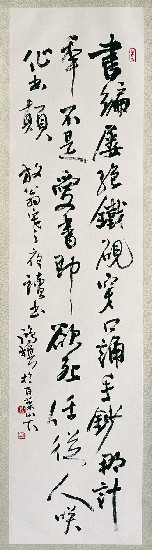 韋編屢絕鐵硯穿口誦手鈔那計
年不是愛書即欲死任從人咲
作書顛 放翁寒夜讀書 於山下